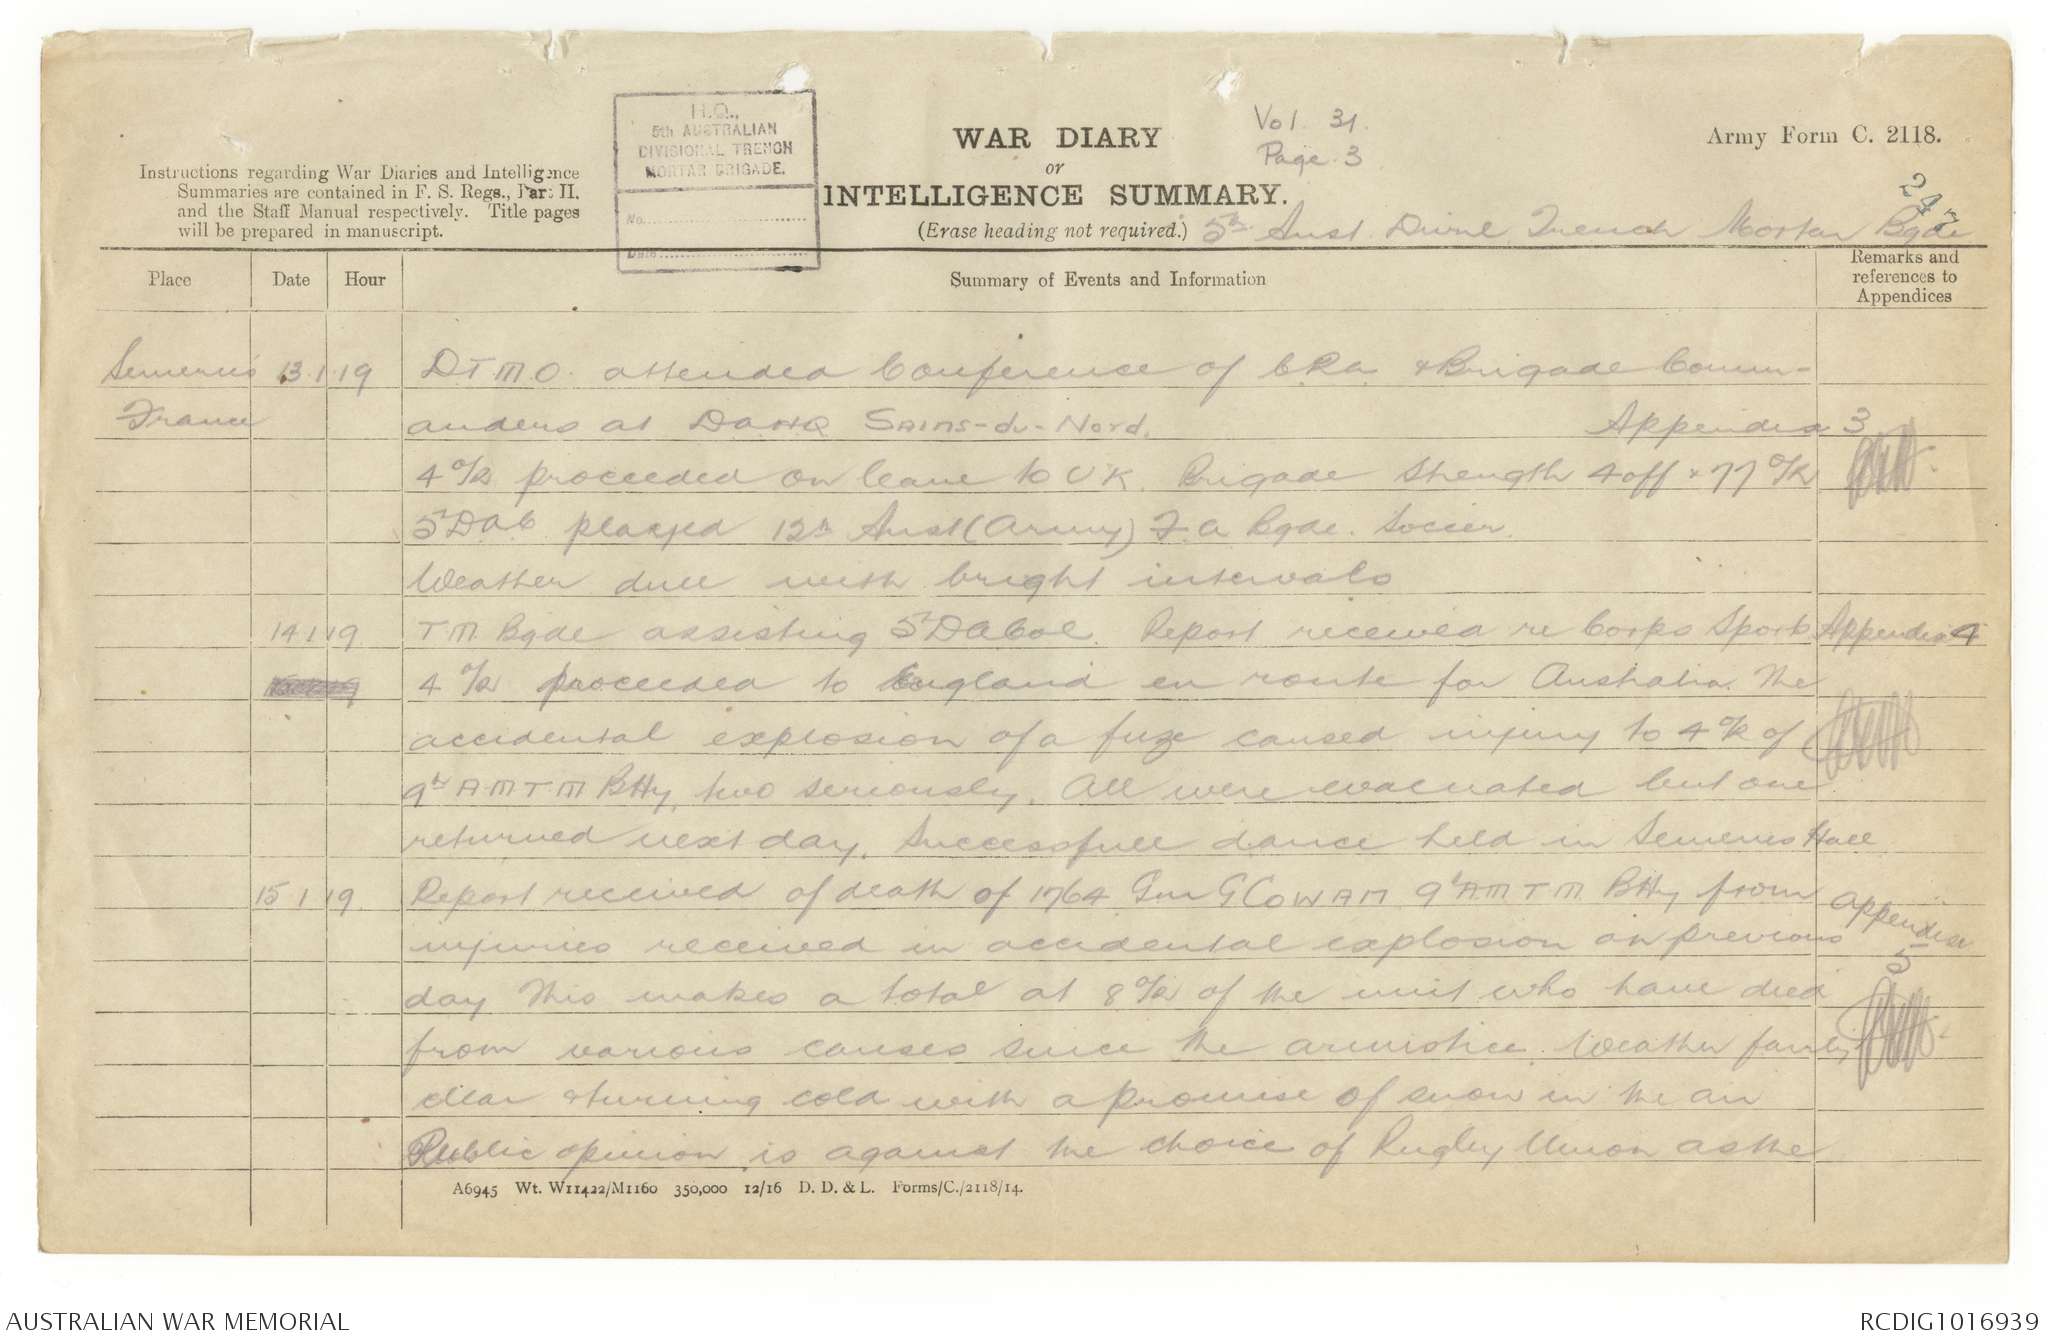 H.Q.,
5th AUSTRALIAN
DIVISIONAL TRENCH
MORTAR BRIGADE.
No.
Date
Instructions regarding War Diaries and Intelligence
Summaries are contained in F. S. Regs., Part II.
and the Staff Manual respectively. Title pages
will be prepared in manuscript.
WAR DIARY
or
INTELLIGENCE SUMMARY.
(Erase heading not required.)
Vol. 31.
Page. 3
Army Form C. 2118.
5th Aust. Divnl Trench Mortar Bgde
Place Date Hour Summary of Events and Information Remarks and references to Appendices
Semeries 13.1.19 DTMO. attended Conference of CRA & Brigade Comm-
France anders at DAHQ SAINS-du-Nord. Appendix 3
4 O/R proceeded on leave to UK. Brigade strength 4 off & 77 O/R
5th DAC played 12th Aust (Army) F.A Bgde. Soccer.
Weather dull with bright intervals
14 1 19 T.M. Bgde assisting 5th DACol. Report received re Corps Sports Appendix 4
4 O/R proceeded to England en route for Australia. The
accidental explosion of a fuze caused injury to 4 O/R of
9th AMTM Btty, two seriously. All were evacuated but one
returned next day. Successfull dance held in Semeries Hall
15 1 19. Report received of death of 1764 Gnr G COWAN 9th AMTM Btty from Appendix 5
injuries received in accidental explosion on previous
day This makes a total at 8 O/R of the unit who have died
from various causes since the armistice. Weather fairly
clear & turning cold with a promise of snow in the air
Public opinion is against the choice of Rugby Union as the
A6945 Wt. W11422/M1160 350,000 12/16 D. D. & L. Forms/C./2118/14.
AUSTRALIAN WAR MEMORIAL
RCDIG1016939